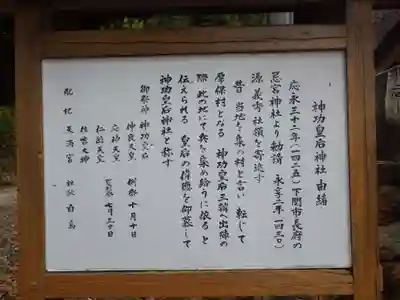 神功皇后神社 由緒
応永三十二年(一四二五)下関市長府の
忌宮神社より勧請 永享二年(一四三〇)
源義孝社領を寄進す
昔 当地を集め村と言い 転じて
厚保村となる 神功皇后三韓へ出陣の
際 此の地にて兵を集め給うに依ると
伝えられる 皇后の偉徳を御慕して
神功皇后神社と称す
御祭神 神功皇后
仲哀天皇 例祭 十月十日
応神天皇
仁徳天皇 七月三十日
住吉大神
配祀 天満宮